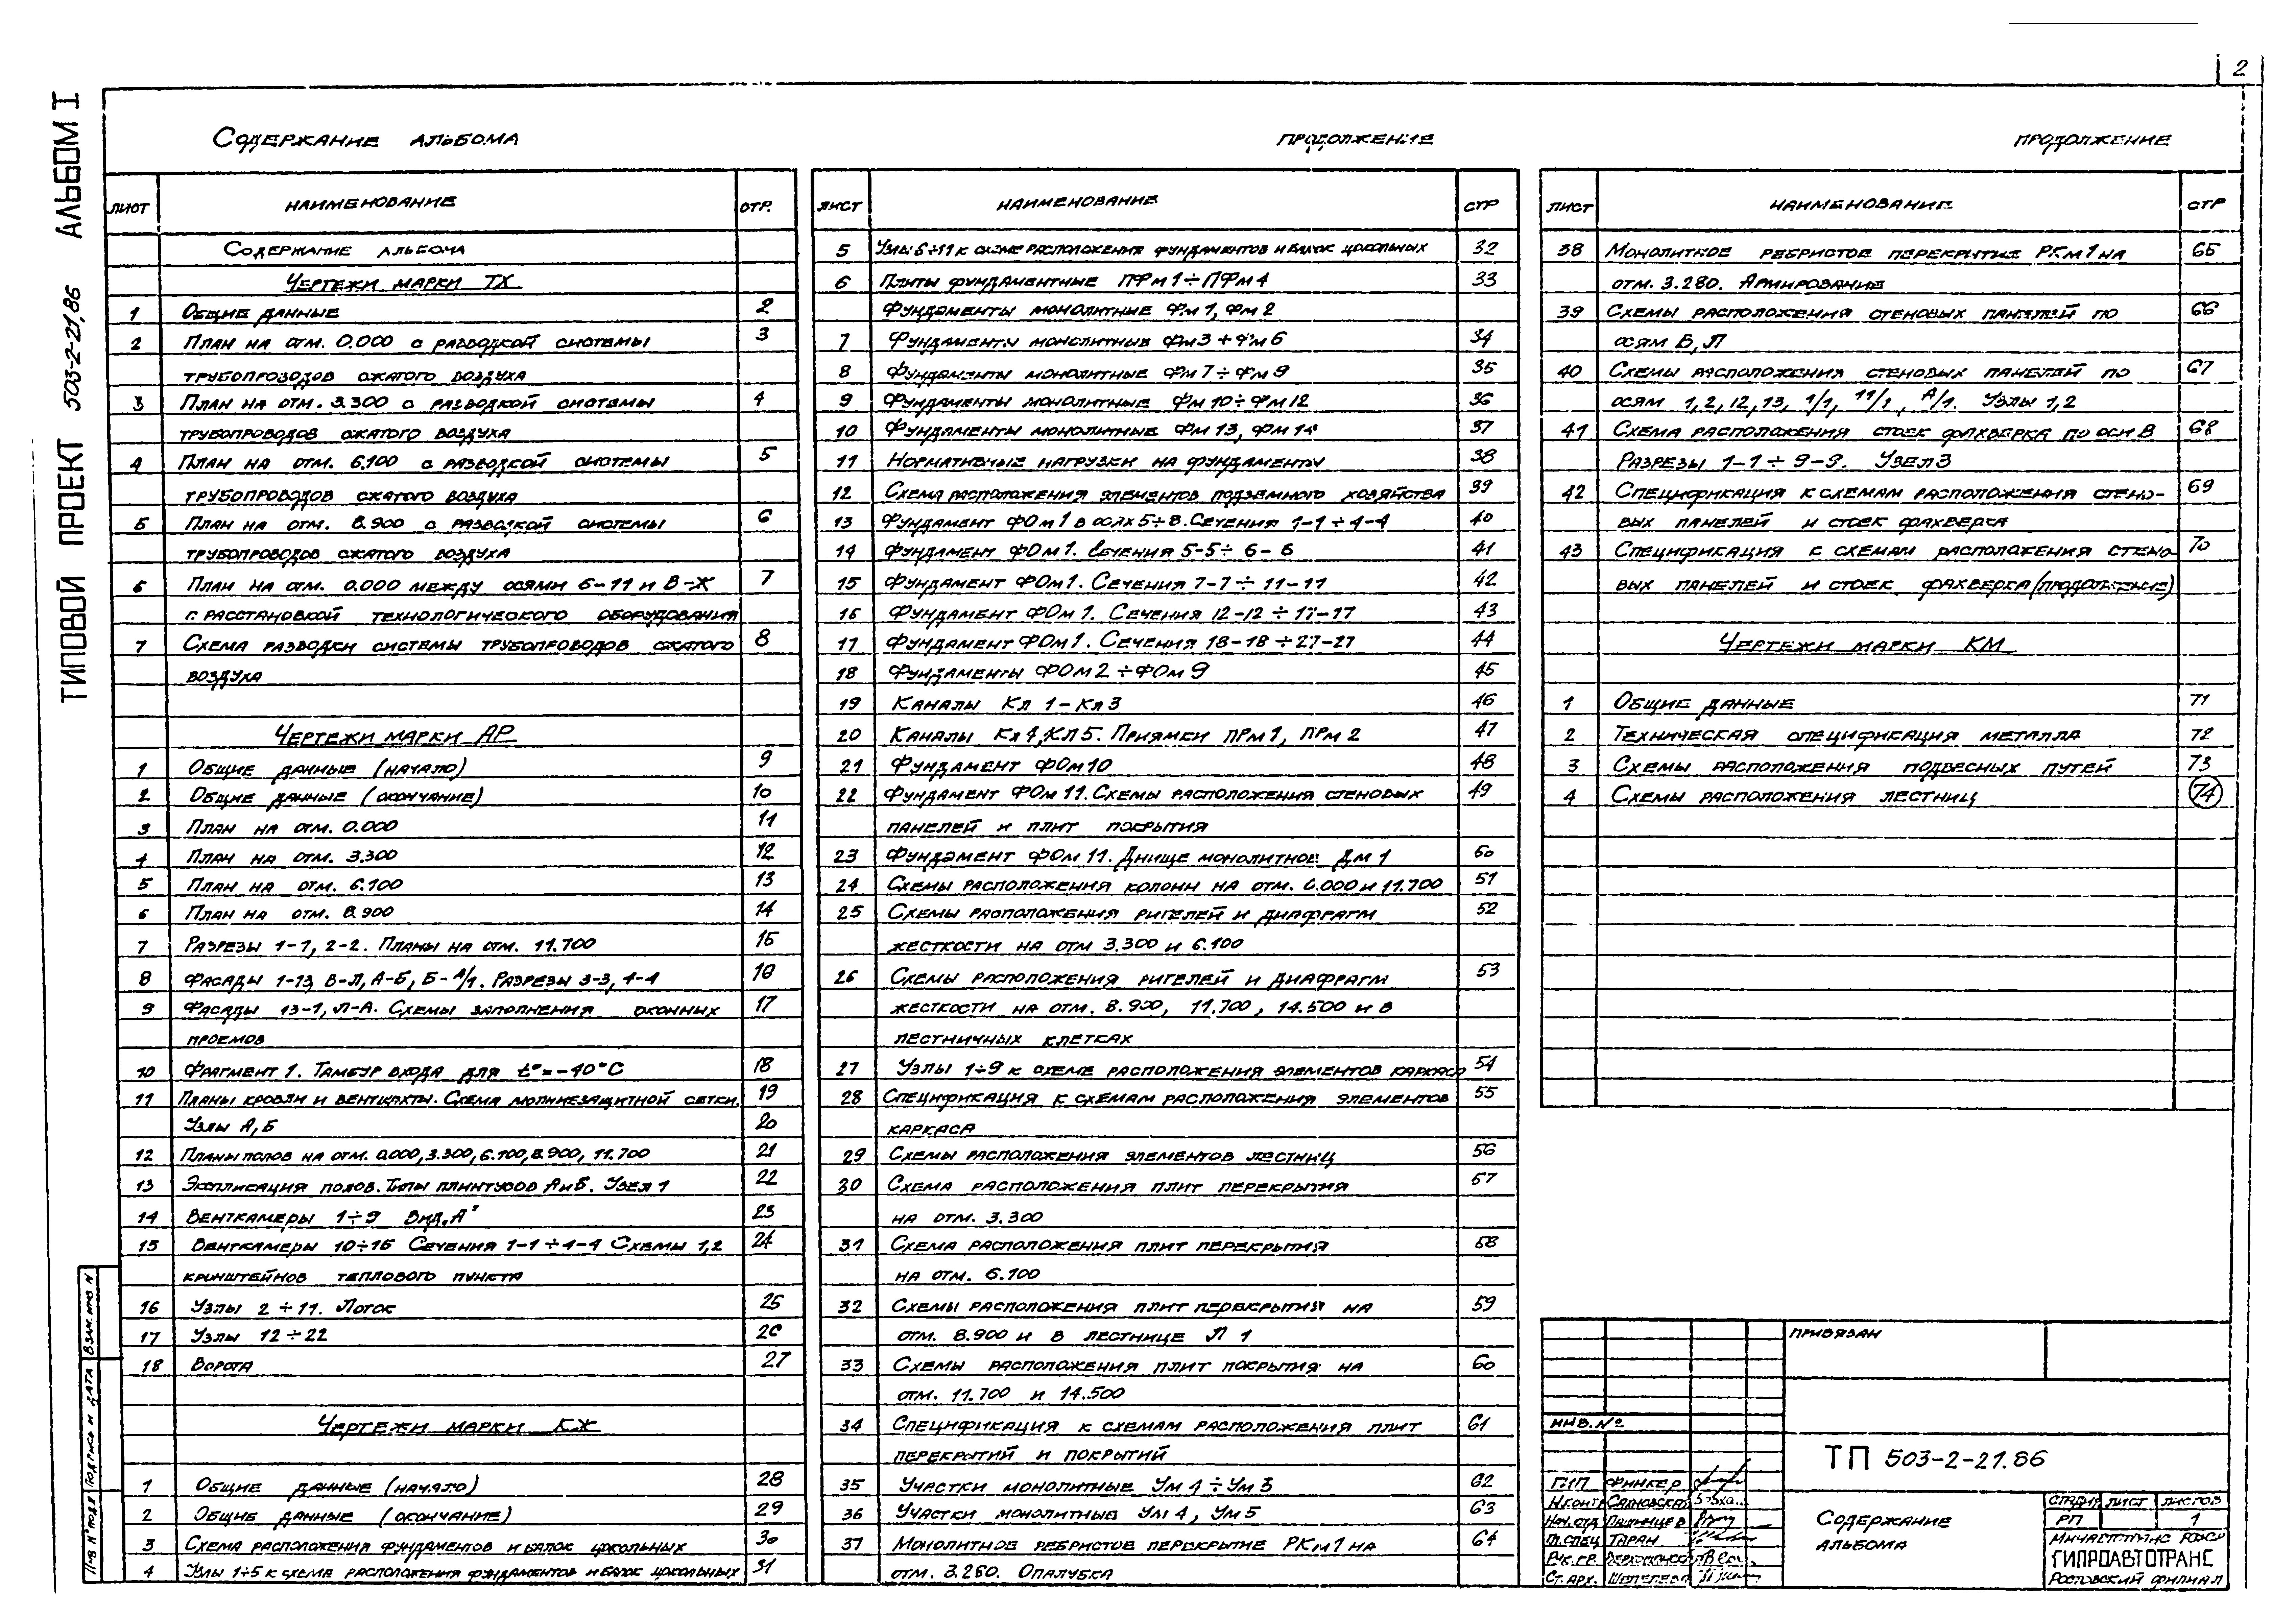 2
ТИПОВОЙ ПРОЕКТ 503-2-21.86 АЛЬБОМ I
СОДЕРЖАНИЕ АЛЬБОМА
ЛИСТ НАИМЕНОВАНИЕ СТР.
СОДЕРЖАНИЕ АЛЬБОМА
ЧЕРТЕЖИ МАРКИ ТХ
1 ОБЩИЕ ДАННЫЕ 2
2 ПЛАН НА ОТМ. 0.000 С РАЗВОДКОЙ СИСТЕМЫ 3
ТРУБОПРОВОДОВ СЖАТОГО ВОЗДУХА
3 ПЛАН НА ОТМ. 3.300 С РАЗВОДКОЙ СИСТЕМЫ 4
ТРУБОПРОВОДОВ СЖАТОГО ВОЗДУХА
4 ПЛАН НА ОТМ. 6.100 С РАЗВОДКОЙ СИСТЕМЫ 5
ТРУБОПРОВОДОВ СЖАТОГО ВОЗДУХА
5 ПЛАН НА ОТМ. 8.900 С РАЗВОДКОЙ СИСТЕМЫ 6
ТРУБОПРОВОДОВ СЖАТОГО ВОЗДУХА
6 ПЛАН НА ОТМ. 0.000 МЕЖДУ ОСЯМИ 6-11 И В-Ж 7
С РАССТАНОВКОЙ ТЕХНОЛОГИЧЕСКОГО ОБОРУДОВАНИЯ
7 СХЕМА РАЗВОДКИ СИСТЕМЫ ТРУБОПРОВОДОВ СЖАТОГО 8
ВОЗДУХА
ЧЕРТЕЖИ МАРКИ АР
1 ОБЩИЕ ДАННЫЕ (НАЧАЛО) 9
2 ОБЩИЕ ДАННЫЕ (ОКОНЧАНИЕ) 10
3 ПЛАН НА ОТМ. 0.000 11
4 ПЛАН НА ОТМ. 3.300 12
5 ПЛАН НА ОТМ. 6.100 13
6 ПЛАН НА ОТМ. 8.900 14
7 РАЗРЕЗЫ 1-1, 2-2. ПЛАНЫ НА ОТМ. 11.700 15
8 ФАСАДЫ 1-13, В-Л, А-Б, Б-А/1. РАЗРЕЗЫ 3-3, 4-4 16
9 ФАСАДЫ 13-1, Л-А. СХЕМЫ ЗАПОЛНЕНИЯ ОКОННЫХ 17
ПРОЕМОВ
10 ФРАГМЕНТ 1. ТАМБУР ВХОДА ДЛЯ t°=-40°С 18
11 ПЛАНЫ КРОВЛИ И ВЕНТШАХТЫ. СХЕМА МОЛНИЕЗАЩИТНОЙ СЕТКИ. 19
УЗЛЫ А, Б 20
12 ПЛАНЫ ПОЛОВ НА ОТМ. 0.000, 3.300, 6.100, 8.900, 11.700 21
13 ЭКСПЛИКАЦИЯ ПОЛОВ. ТИПЫ ПЛИНТУСОВ А И Б. УЗЕЛ 1 22
14 ВЕНТКАМЕРЫ 1÷9 ВИД „А" 23
15 ВЕНТКАМЕРЫ 10÷15 СЕЧЕНИЯ 1-1÷4-4 СХЕМЫ 1,2 24
КРОНШТЕЙНОВ ТЕПЛОВОГО ПУНКТА
16 УЗЛЫ 2÷11. ЛОТОК 25
17 УЗЛЫ 12÷22 26
18 ВОРОТА 27
ЧЕРТЕЖИ МАРКИ КЖ
1 ОБЩИЕ ДАННЫЕ (НАЧАЛО) 28
2 ОБЩИЕ ДАННЫЕ (ОКОНЧАНИЕ) 29
3 СХЕМА РАСПОЛОЖЕНИЯ ФУНДАМЕНТОВ И БАЛОК ЦОКОЛЬНЫХ 30
4 УЗЛЫ 1÷5 К СХЕМЕ РАСПОЛОЖЕНИЯ ФУНДАМЕНТОВ И БАЛОК ЦОКОЛЬНЫХ 31
ПРОДОЛЖЕНИЕ
ЛИСТ НАИМЕНОВАНИЕ СТР
5 УЗЛЫ 6÷11 К СХЕМЕ РАСПОЛОЖЕНИЯ ФУНДАМЕНТОВ И БАЛОК ЦОКОЛЬНЫХ 32
6 ПЛИТЫ ФУНДАМЕНТНЫЕ ПФм1÷ПФм4 33
ФУНДАМЕНТЫ МОНОЛИТНЫЕ Фм1, Фм2
7 ФУНДАМЕНТЫ МОНОЛИТНЫЕ Фм3÷Фм6 34
8 ФУНДАМЕНТЫ МОНОЛИТНЫЕ Фм7÷Фм9 35
9 ФУНДАМЕНТЫ МОНОЛИТНЫЕ Фм10÷Фм12 36
10 ФУНДАМЕНТЫ МОНОЛИТНЫЕ Фм13, Фм14 37
11 НОРМАТИВНЫЕ НАГРУЗКИ НА ФУНДАМЕНТЫ 38
12 СХЕМА РАСПОЛОЖЕНИЯ ЭЛЕМЕНТОВ ПОДЗЕМНОГО ХОЗЯЙСТВА 39
13 ФУНДАМЕНТ ФОм1 В ОСЯХ 5÷8. СЕЧЕНИЯ 1-1÷4-4 40
14 ФУНДАМЕНТ ФОм1. СЕЧЕНИЯ 5-5÷6-6 41
15 ФУНДАМЕНТ ФОм1. СЕЧЕНИЯ 7-7÷11-11 42
16 ФУНДАМЕНТ ФОм1. СЕЧЕНИЯ 12-12÷17-17 43
17 ФУНДАМЕНТ ФОм1. СЕЧЕНИЯ 18-18÷27-27 44
18 ФУНДАМЕНТЫ ФОм2÷ФОм9 45
19 КАНАЛЫ Кл1-Кл3 46
20 КАНАЛЫ Кл4, КЛ5. ПРИЯМКИ ПРм1, ПРм2 47
21 ФУНДАМЕНТ ФОм10 48
22 ФУНДАМЕНТ ФОм11. СХЕМЫ РАСПОЛОЖЕНИЯ СТЕНОВЫХ 49
ПАНЕЛЕЙ И ПЛИТ ПОКРЫТИЯ
23 ФУНДАМЕНТ ФОм11. ДНИЩЕ МОНОЛИТНОЕ Дм1 50
24 СХЕМЫ РАСПОЛОЖЕНИЯ КОЛОНН НА ОТМ. 6.000 И 11.700 51
25 СХЕМЫ РАСПОЛОЖЕНИЯ РИГЕЛЕЙ И ДИАФРАГМ 52
ЖЕСТКОСТИ НА ОТМ 3.300 И 6.100
26 СХЕМЫ РАСПОЛОЖЕНИЯ РИГЕЛЕЙ И ДИАФРАГМ 53
ЖЕСТКОСТИ НА ОТМ. 8.900, 11.700, 14.500 И В
ЛЕСТНИЧНЫХ КЛЕТКАХ
27 УЗЛЫ 1÷9 К СХЕМЕ РАСПОЛОЖЕНИЯ ЭЛЕМЕНТОВ КАРКАСА 54
28 СПЕЦИФИКАЦИЯ К СХЕМАМ РАСПОЛОЖЕНИЯ ЭЛЕМЕНТОВ 55
КАРКАСА
29 СХЕМЫ РАСПОЛОЖЕНИЯ ЭЛЕМЕНТОВ ЛЕСТНИЦ 56
30 СХЕМА РАСПОЛОЖЕНИЯ ПЛИТ ПЕРЕКРЫТИЯ 57
НА ОТМ. 3.300
31 СХЕМА РАСПОЛОЖЕНИЯ ПЛИТ ПЕРЕКРЫТИЯ 58
НА ОТМ. 6.100
32 СХЕМЫ РАСПОЛОЖЕНИЯ ПЛИТ ПЕРЕКРЫТИЯ НА 59
ОТМ. 8.900 И В ЛЕСТНИЦЕ Л 1
33 СХЕМЫ РАСПОЛОЖЕНИЯ ПЛИТ ПОКРЫТИЯ НА 60
ОТМ. 11.700 И 14.500
34 СПЕЦИФИКАЦИЯ К СХЕМАМ РАСПОЛОЖЕНИЯ ПЛИТ 61
ПЕРЕКРЫТИЙ И ПОКРЫТИЙ
35 УЧАСТКИ МОНОЛИТНЫЕ Ум1÷Ум3 62
36 УЧАСТКИ МОНОЛИТНЫЕ Ум4, Ум5 63
37 МОНОЛИТНОЕ РЕБРИСТОЕ ПЕРЕКРЫТИЕ РКм1 НА 64
ОТМ. 3.280. ОПАЛУБКА
ПРОДОЛЖЕНИЕ
ЛИСТ НАИМЕНОВАНИЕ СТР
38 МОНОЛИТНОЕ РЕБРИСТОЕ ПЕРЕКРЫТИЕ РКм1 НА 65
ОТМ. 3.280. АРМИРОВАНИЕ
39 СХЕМЫ РАСПОЛОЖЕНИЯ СТЕНОВЫХ ПАНЕЛЕЙ ПО 66
ОСЯМ В, Л
40 СХЕМЫ РАСПОЛОЖЕНИЯ СТЕНОВЫХ ПАНЕЛЕЙ ПО 67
ОСЯМ 1, 2, 12, 13, 1/1, 11/1, А/1. УЗЛЫ 1,2
41 СХЕМА РАСПОЛОЖЕНИЯ СТОЕК ФАХВЕРКА ПО ОСИ В 68
РАЗРЕЗЫ 1-1÷9-9. УЗЕЛ 3
42 СПЕЦИФИКАЦИЯ К СХЕМАМ РАСПОЛОЖЕНИЯ СТЕНО- 69
ВЫХ ПАНЕЛЕЙ И СТОЕК ФАХВЕРКА
43 СПЕЦИФИКАЦИЯ К СХЕМАМ РАСПОЛОЖЕНИЯ СТЕНО- 70
ВЫХ ПАНЕЛЕЙ И СТОЕК ФАХВЕРКА (ПРОДОЛЖЕНИЕ)
ЧЕРТЕЖИ МАРКИ КМ
1 ОБЩИЕ ДАННЫЕ 71
2 ТЕХНИЧЕСКАЯ СПЕЦИФИКАЦИЯ МЕТАЛЛА 72
3 СХЕМЫ РАСПОЛОЖЕНИЯ ПОДВЕСНЫХ ПУТЕЙ 73
4 СХЕМЫ РАСПОЛОЖЕНИЯ ЛЕСТНИЦ 74
ПРИВЯЗАН
ИНВ. №
ТП 503-2-21.86
ГИП ФИНКЕР
Н.КОНТР САХНОВСКАЯ
НАЧ. ОТД ПАШИНЦЕВ
ГЛ.СПЕЦ ТАРАН
РУК. ГР.
СТ. АРХ. ШЕПЕЛЕВА
СОДЕРЖАНИЕ
АЛЬБОМА
СТАДИЯ ЛИСТ ЛИСТОВ
РП 1
МИНАВТОТРАНС РСФСР
ГИПРОАВТОТРАНС
РОСТОВСКИЙ ФИЛИАЛ
ИНВ № ПОДЛ ПОДПИСЬ И ДАТА ВЗАМ. ИНВ N